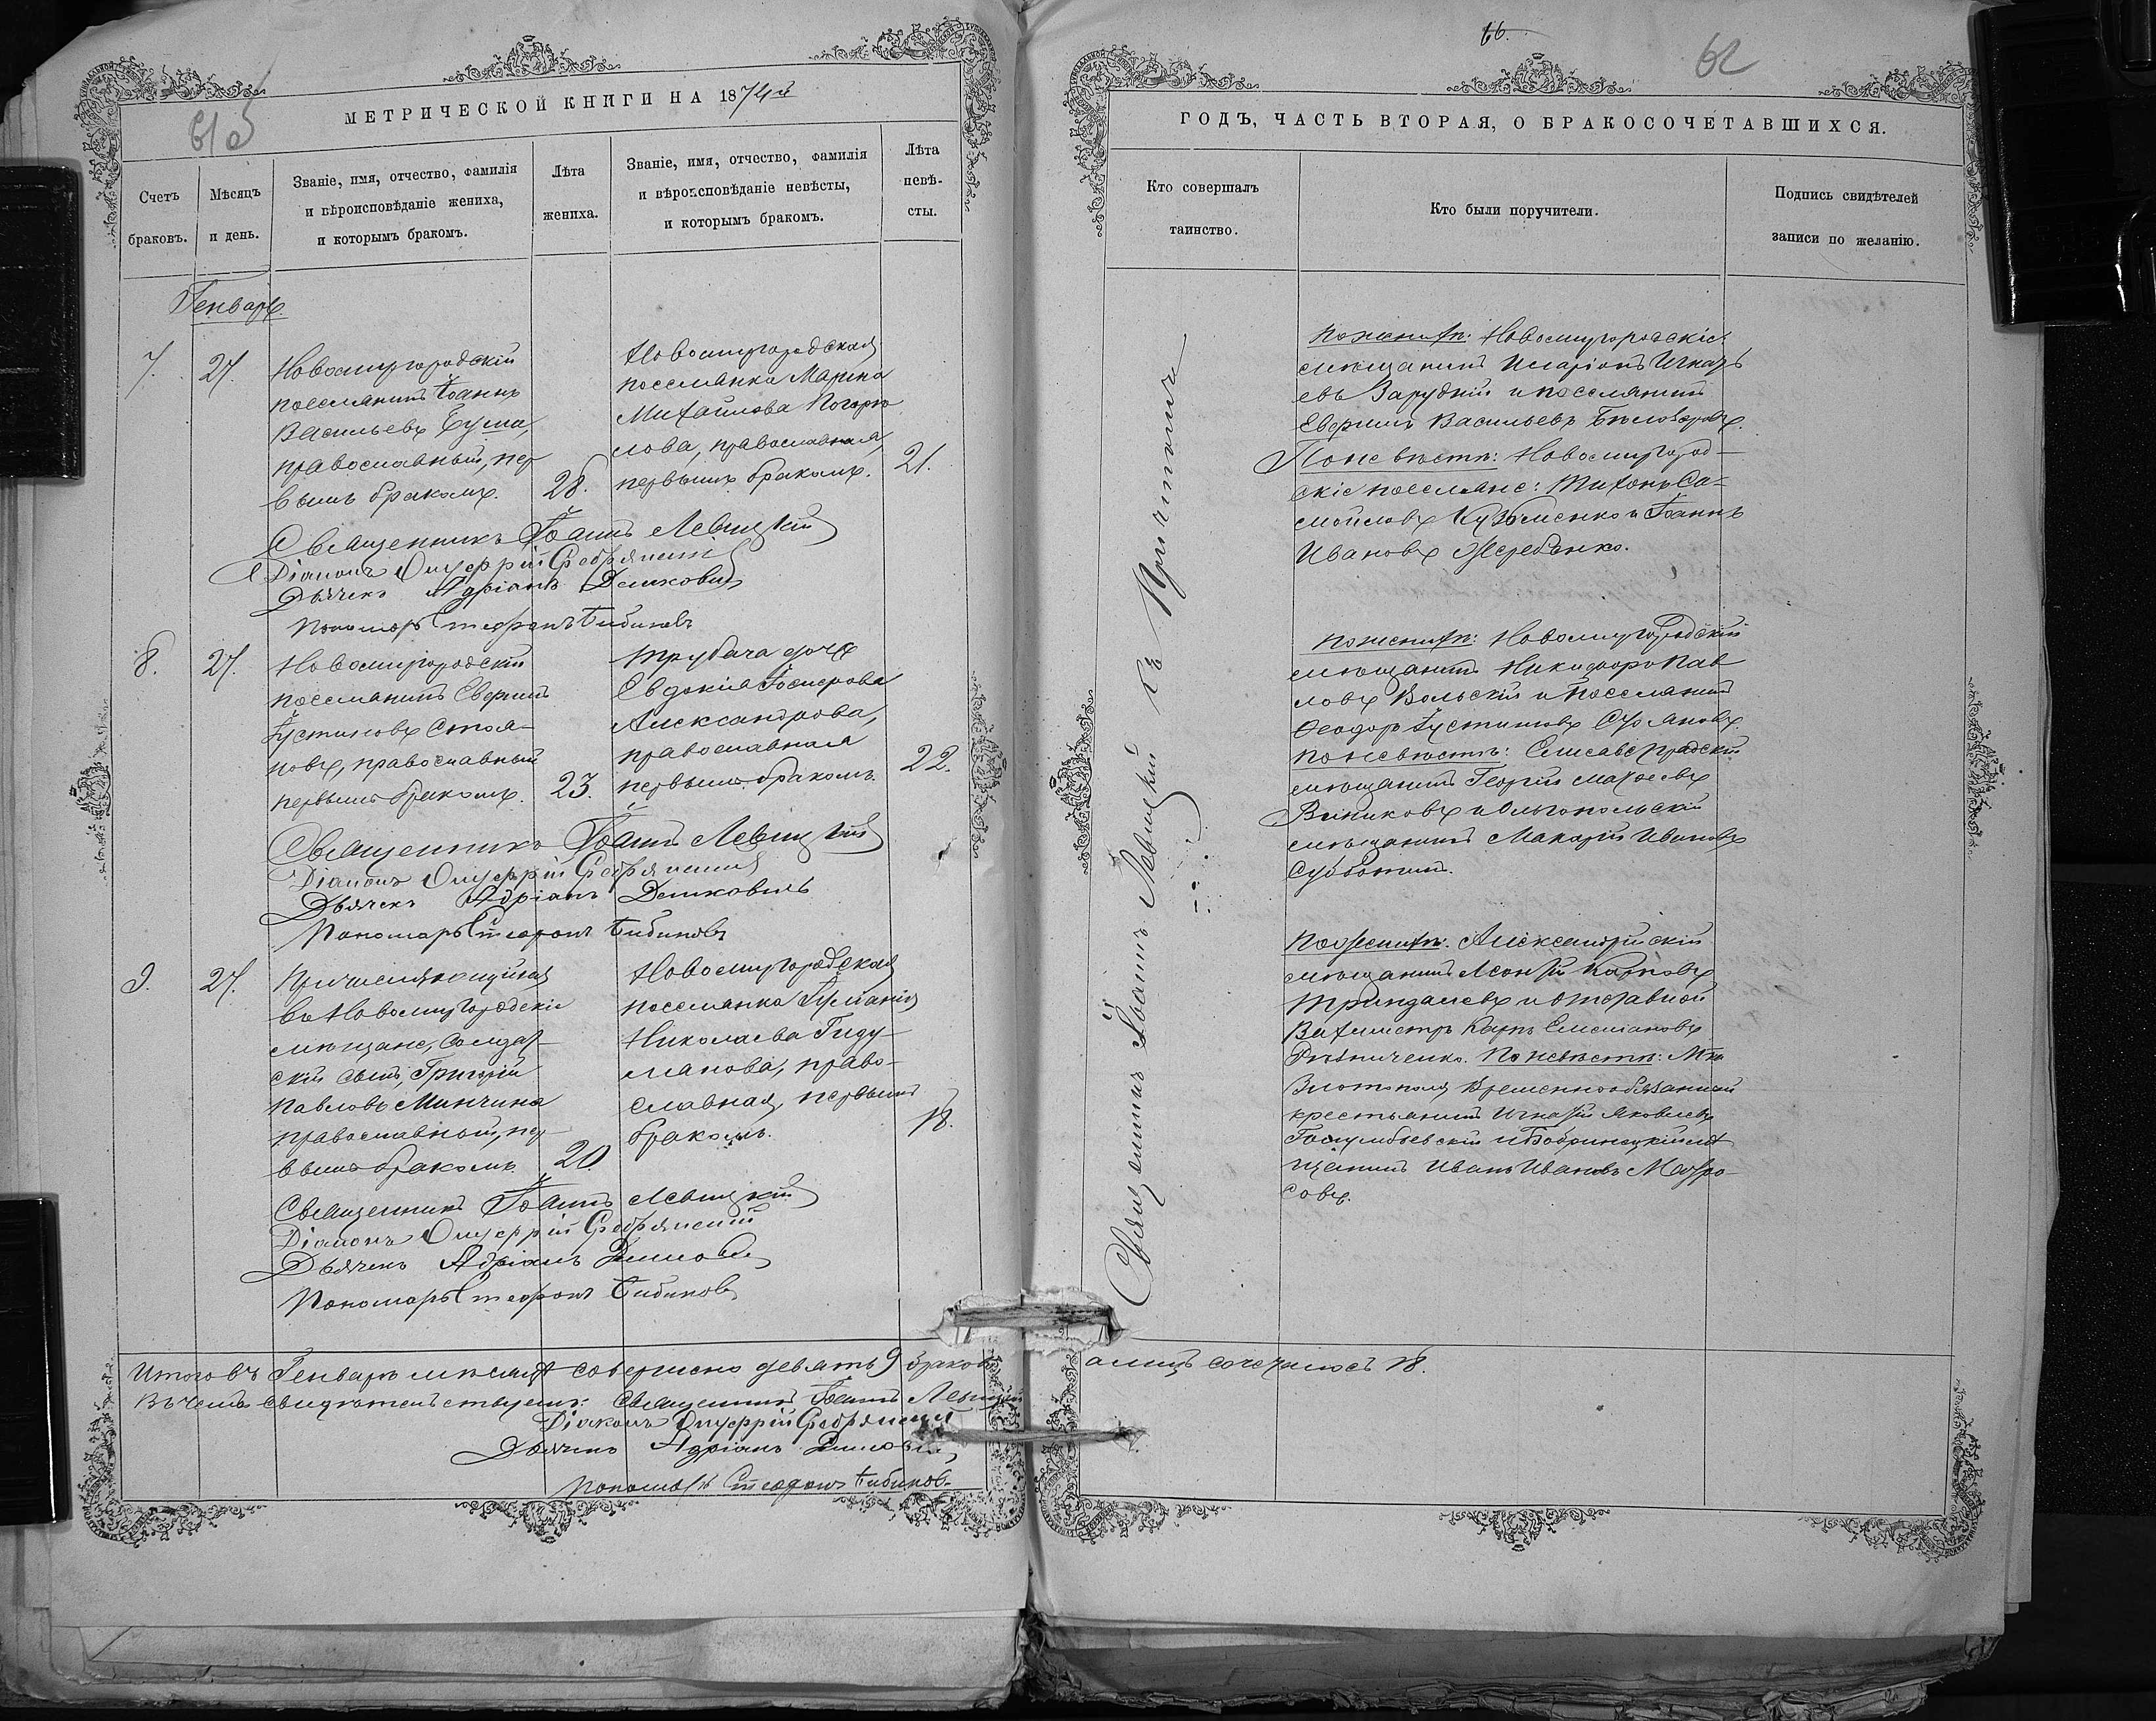 МЕТРИЧЕСКОЙ КНИГИ НА 1874й
Счетъ браковъ.
Мѣсяцъ и день.
Званіе, имя, отчество, фамилія
и вѣроисповѣданіе жениха,
и которымъ бракомъ.
Лѣта
жениха.
Званіе, имя, отчество, фамилія
и вѣроисповѣданіе невѣсты,
и которымъ бракомъ.
Лѣта
невѣ-
сты.
Генварь.
7.
27.
Новомиргородскій
поселянинъ Іоаннъ
Васильевъ Бума,
православный, пер
вымъ бракомъ.
28.
Новомиргородская
поселянка Марина
Михайлова Погорѣ
лова, православная,
первымъ бракомъ.
21.
Священникъ Іоаннъ Левицкій
Діаконъ Онуфрій Серебрянскій
Дьячекъ Адріанъ
Пономарь Стефанъ Бибиковъ
8.
27.
Новомиргородскій
поселянинъ Ефримъ
Іустиновъ Стоя-
новъ, православный
первымъ бракомъ.
23.
трубача дочь
Евдокія
Александрова,
православная
первымъ бракомъ.
22.
Священникъ Іоаннъ Левицкій
Діаконъ Онуфрій Серебрянскій
Дьячекъ Адріанъ
Пономарь Стефанъ Бибиковъ
9.
27.
Причисляющійся
въ Новомиргородскіе
мѣщане, солдат-
скій сынъ, Григорій
Павловъ Минчина
православный, пер-
вымъ бракомъ
20
Новомиргородская
поселянка Іуліанія
Николаева Гиду-
лянова, право-
славная, первымъ
бракомъ.
18.
Священникъ Іоаннъ Левицкій
Діаконъ Онуфрій Серебрянскій
Дьячекъ Адріанъ
Пономарь Стефанъ Бибиковъ
Итого въ Генварѣ мѣсяцѣ совершено девять 9 браковъ
Въ чемъ свидѣтельствуемъ: Священникъ Іоаннъ Левицкій
Діаконъ Онуфрій Серебрянскій
Дьячекъ Адріанъ
Пономарь Стефанъ Бибиковъ
66.
62
ГОДЪ, ЧАСТЬ ВТОРАЯ, О БРАКОСОЧЕТАВШИХСЯ.
Кто совершалъ
таинство.
Кто были поручители.
Подпись свидѣтелей
записи по желанію.
Священникъ Іоаннъ Левицкій съ Причтомъ
По женихѣ: Новомиргородскіе
мѣщанинъ Иларіонъ Игнать
евъ Зарудній и поселянинъ
Ефримъ Васильевъ
По невѣстѣ: Новомиргород-
скіе поселяне: Тихонъ Са-
мойловъ Кузьменко и Іоаннъ
Ивановъ Жеребенко.
По женихѣ: Новомиргородскій
мѣщанинъ Никифоръ Пав
ловъ Вольскій и поселянинъ
Ѳеодоръ Іустиновъ Стояновъ.
По невѣстѣ: Елисаветградскій
мѣщанинъ Георгій
и Ольгопольскій
мѣщанинъ Макарій Ивановъ
Субботинъ.
По женихѣ: Александрійскій
мѣщанинъ Леонтій Карповъ
и отставной
Вахмистръ Карпъ Емеліановъ
Рѣзниченко. По невѣстѣ: М-ка
Златополя временнообязанный
крестьянинъ Игнатій Яковлевъ
и Бобринецкій мѣ
щанинъ Иванъ Ивановъ Матро
совъ.
а лицъ сочеталось 18.